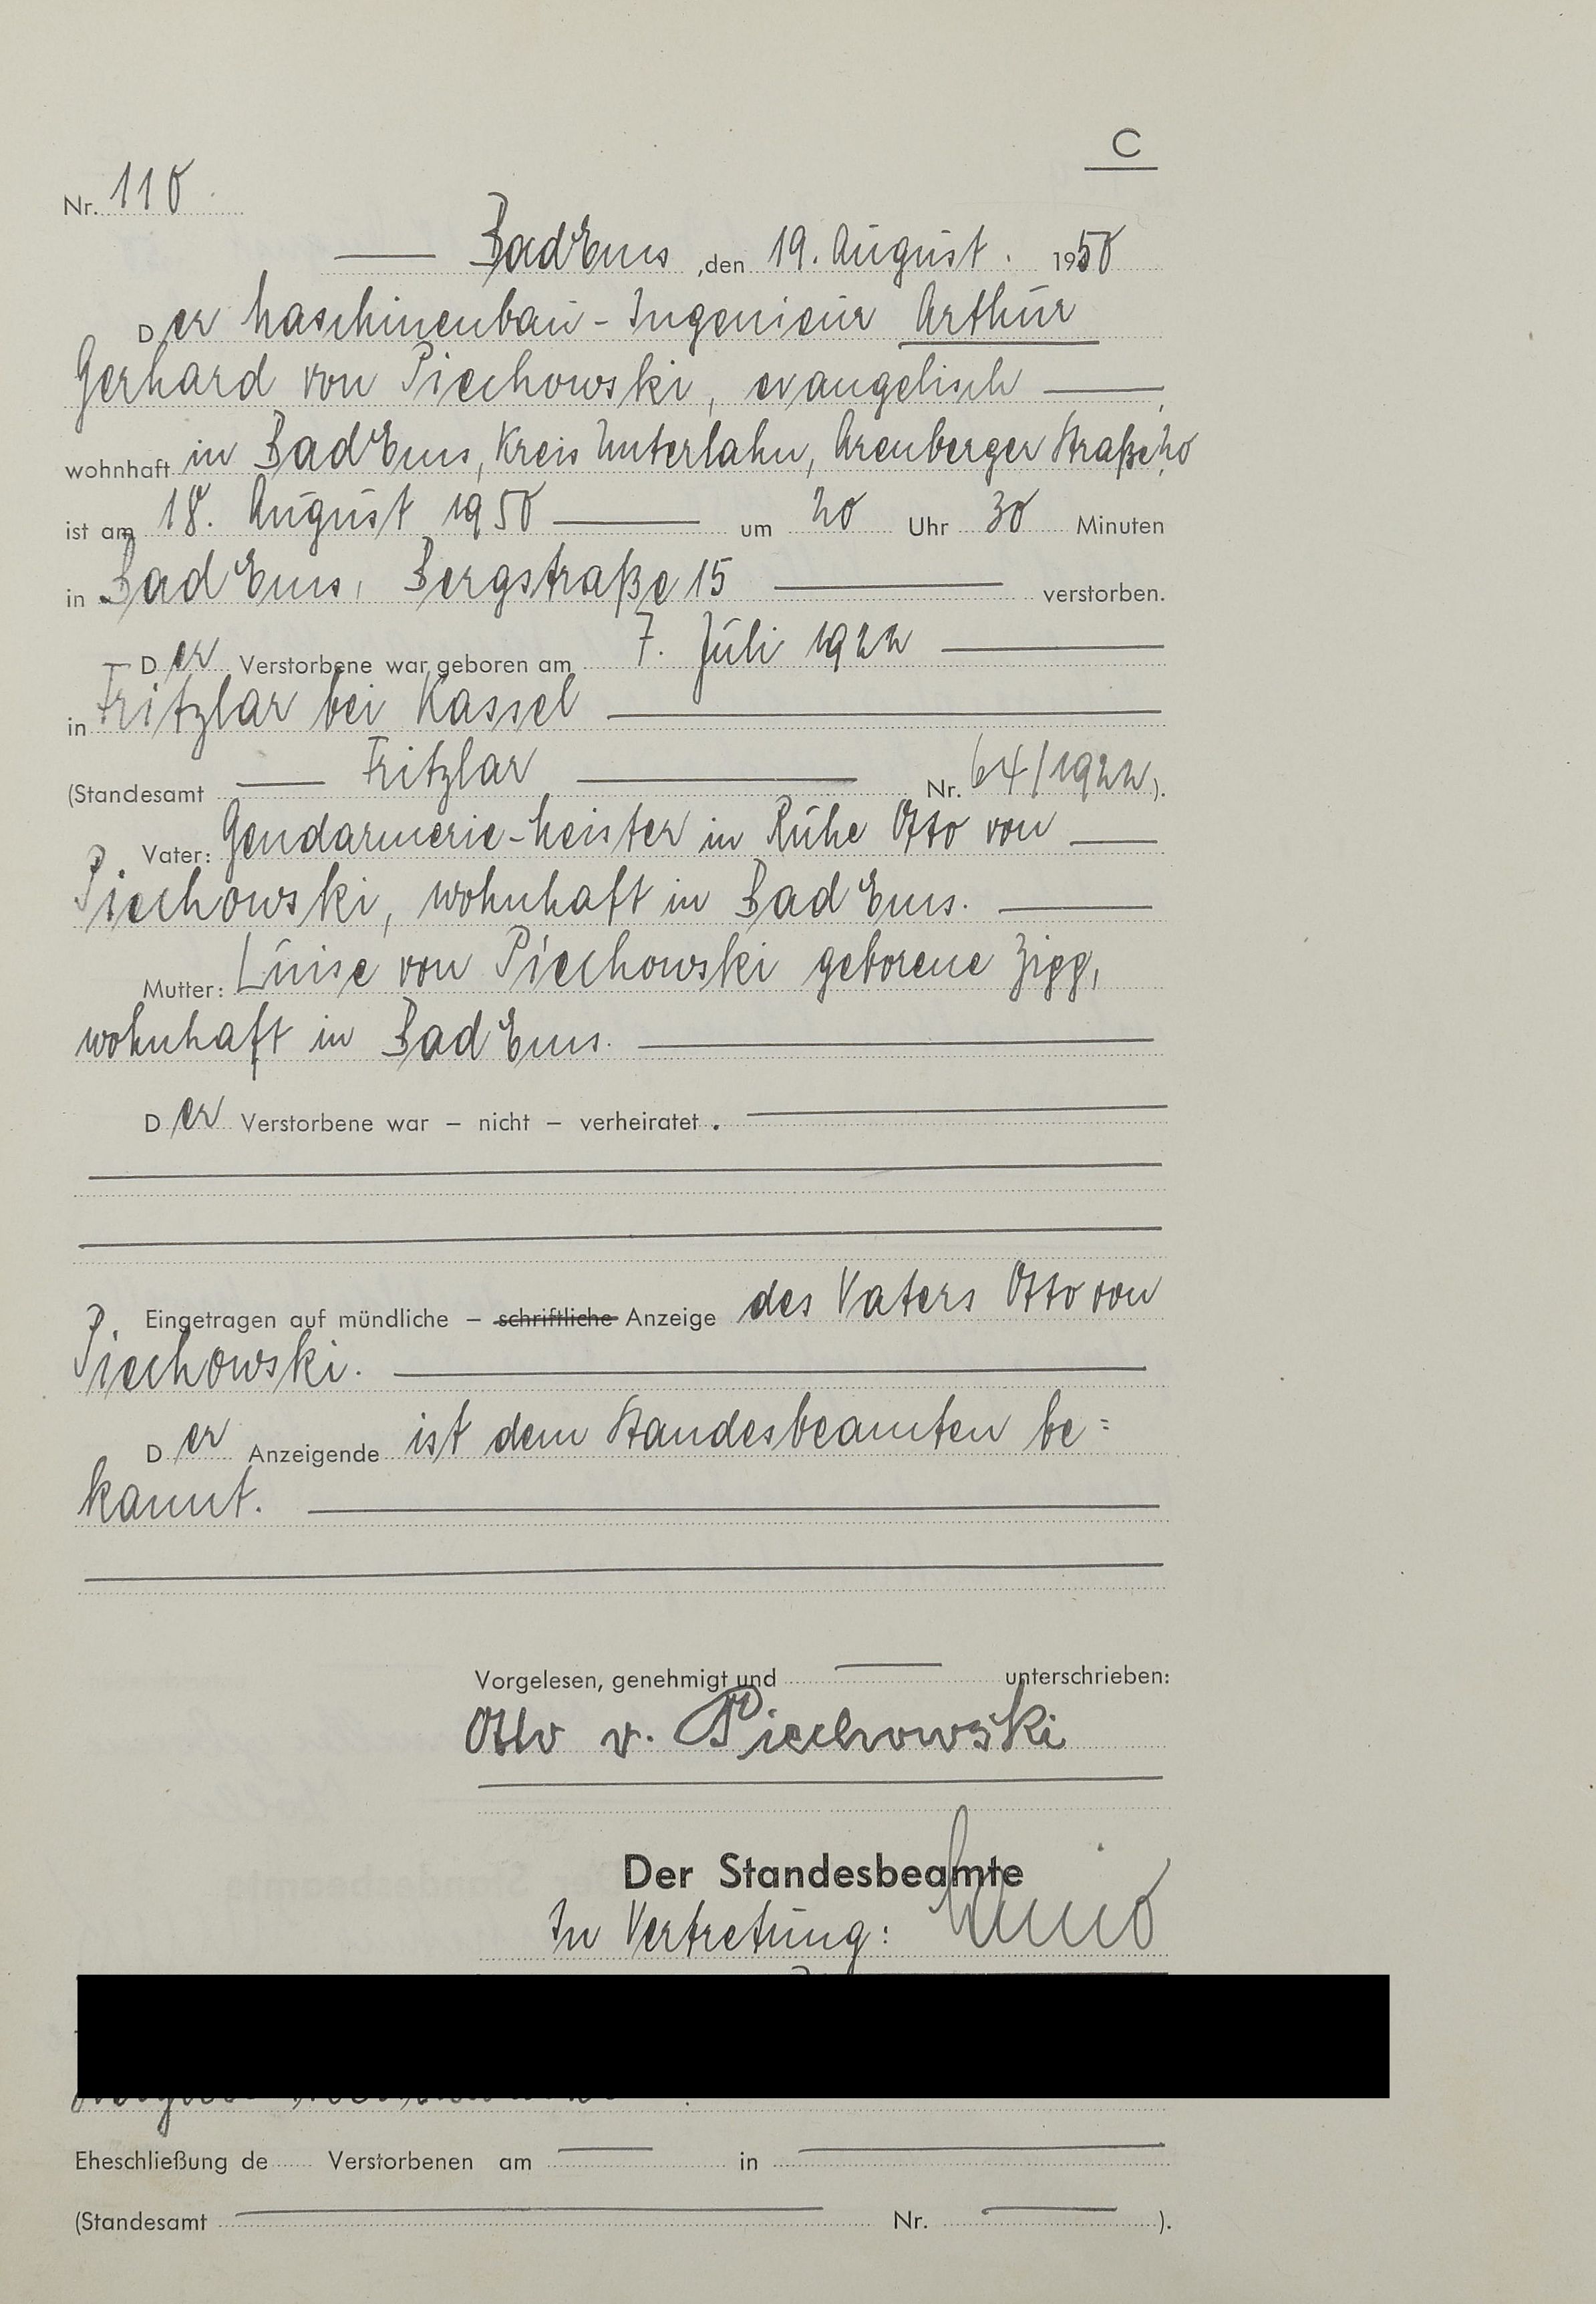 C
Nr. 110
Bad Ems, den 19. August 1950
Der Maschinenbau-Ingenieur Arthur
Gerhard von Piechowski, evangelisch
wohnhaft in Bad Ems, Kreis Unterlahn, Arenberger Straße 20
ist am 18. August 1950 um 20 Uhr 30 Minuten
in Bad Ems, Bergstraße 15 verstorben.
Der Verstorbene war geboren am 7. Juli 1922
in Fritzlar bei Kassel
(Standesamt Fritzlar Nr. 64/1922).
Vater: Gendarmerie-Meister in Ruhe Otto von
Piechowski, wohnhaft in Bad Ems.
Mutter: Luise von Piechowski geborene Zigg,
wohnhaft in Bad Ems.
Der Verstorbene war – nicht – verheiratet.
Eingetragen auf mündliche – schriftliche Anzeige des Vaters Otto von
Piechowski.
Der Anzeigende ist dem Standesbeamten be=
kannt.
Vorgelesen, genehmigt und unterschrieben:
Otto v. Piechowski
Der Standesbeamte
In Vertretung:
Eheschließung de Verstorbenen am in
(Standesamt Nr. ).